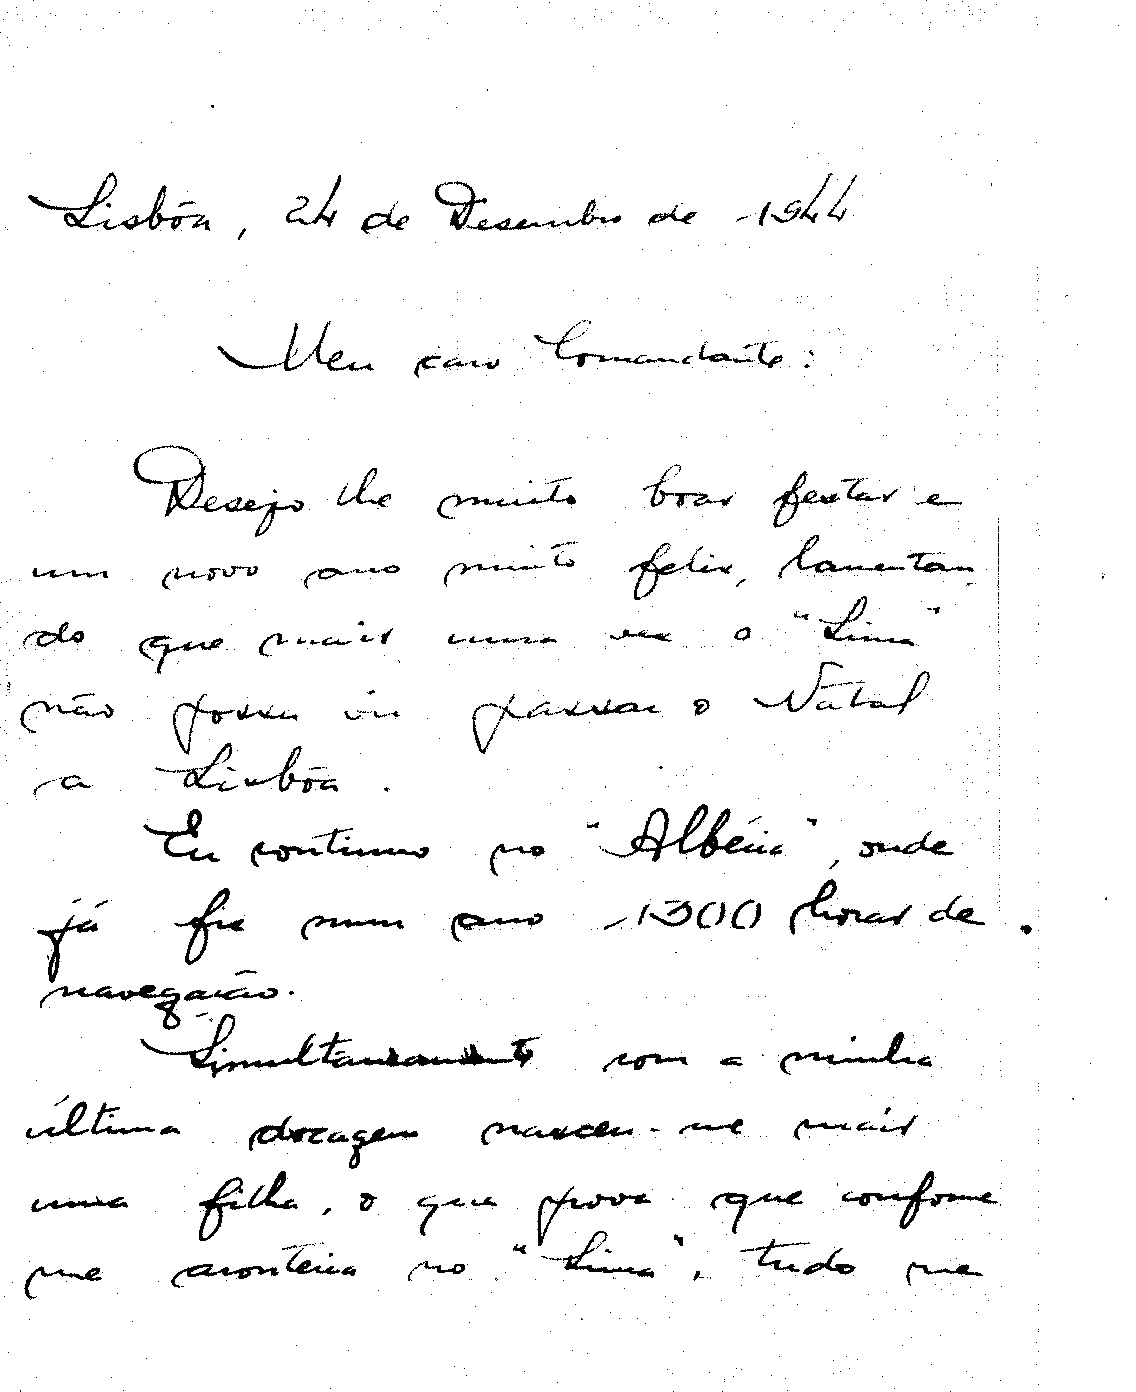 Lisbôa, 24 de Desembro de 1944
Meu caro Comandante:
Desejo lhe muito boas festas e
um novo ano muito felix, lamentan
do que mais uma vez o "Lima"
não possa vir passar o Natal
a Lisbôa.
Eu continuo no "Albéria", onde
já fiz num ano 1300 horas de
navegação.
Simultaneamente com a minha
última docagem nasceu-me mais
uma filha, o que prova que confome
me acontecia no "Lima", tudo me